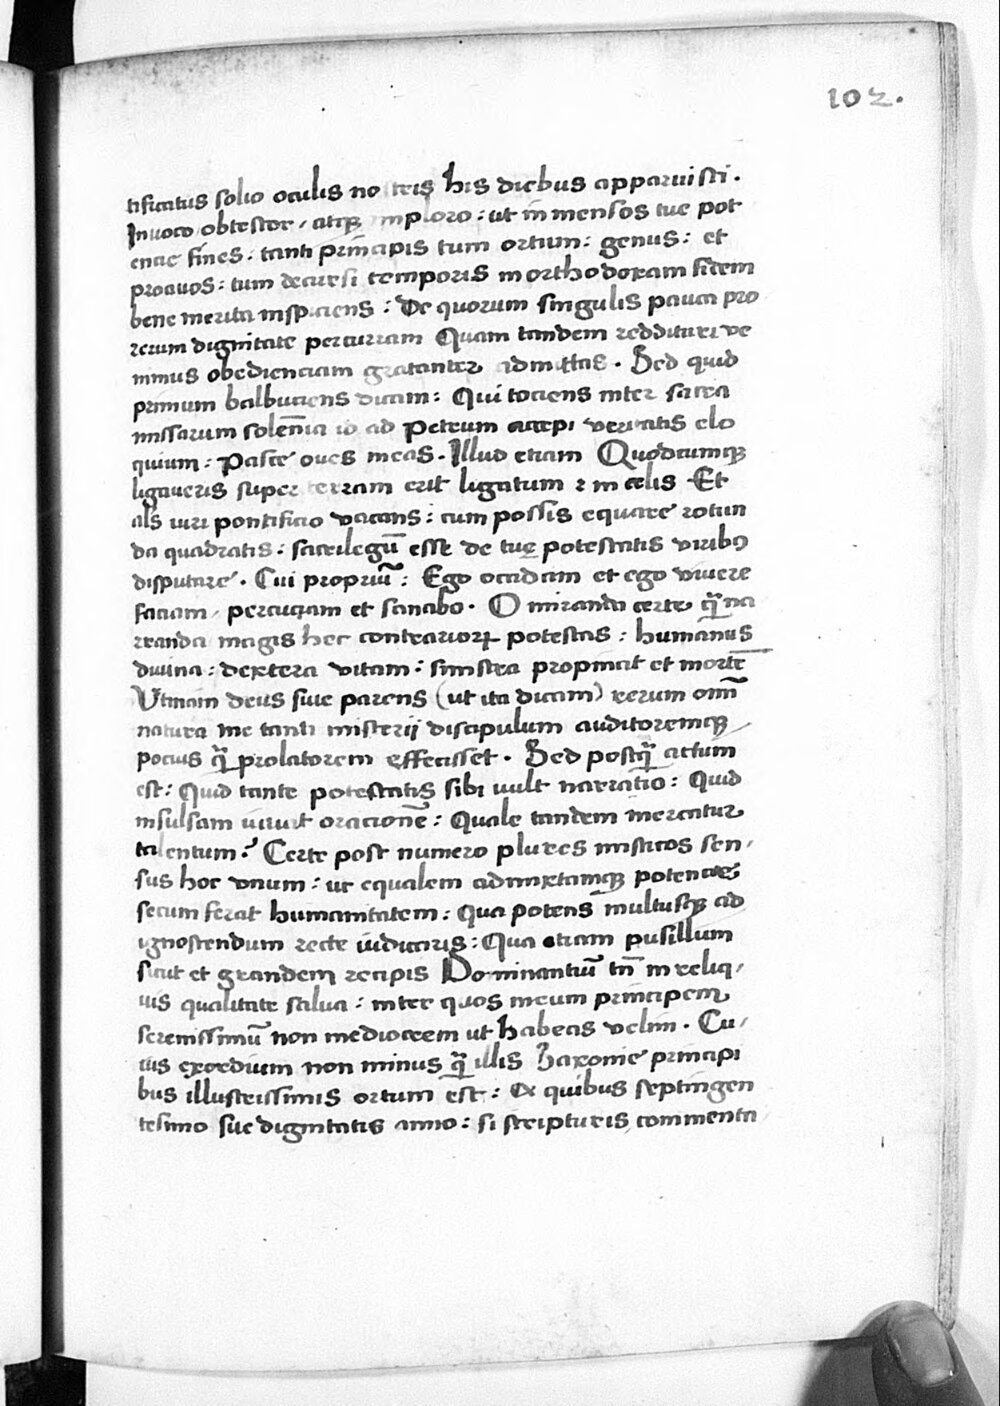 102.
tificatus solio oculis nostris his diebus apparuisti.
Inuoco obtestor, atqꝫ imploro: ut inmensos tue pot
encie fines: tanti principis tum ortum: genus: et
proauos: tum decursi temporis in orthodoxam fidem
bene merita inspiciens: De quorum singulis pauca pro
rerum dignitate percurram Quam tandem reddituri ve
nimus obedienciam gratanter admittas. Sed quid
primum balbuciens dicam: Qui tociens inter sacra
missarum solēnia id ad Petrum accepi veritatis elo
quium: Pasce oues meas. Illud etiam Quodcumqꝫ
ligaueris super terram erit ligatum ⁊ in celis Et
als iuri pontificio vacans: cum possis equare rotun
da quadratis: sacrilegū esse de tuę potestatis viribꝯ
disputare. Cui propriū: Ego occidam et ego viuere
faciam, percuciam et sanabo. O miranda certe q̄ na
rranda magis hec contrarioꝝ potestas: humanus
diuina: dextera vitam: sinistra propinat et mortē
Vtinam deus siue parens (ut ita dicam) rerum omī
natura me tanti misterij discipulum auditoremqꝫ
pocius q̄ prolatorem effecisset. Sed postq̄ actum
est: Quid tante potestatis sibi uult narratio: Quid
insulsam iuuit oracionē: Quale tandem mercatur
talentum? Certe post numero plures misticos sen,
sus hoc vnum: ut equalem admixtamqꝫ potencie
secum ferat humanitatem: Qua potens multusqꝫ ad
ignoscendum recte iudicaris: Qua etiam pusillum
sicut et grandem recipis Dominantiū tn̄ in reliq,
uis qualitate salua: inter quos meum principem
serenissimū non mediocrem ut habeas velim. Cu,
ius exordium non minus q̄ illis Saxonie principi
bus illustrissimis ortum est: Ex quibus septingen
tesimo sue dignitatis anno: si scripturis commenta